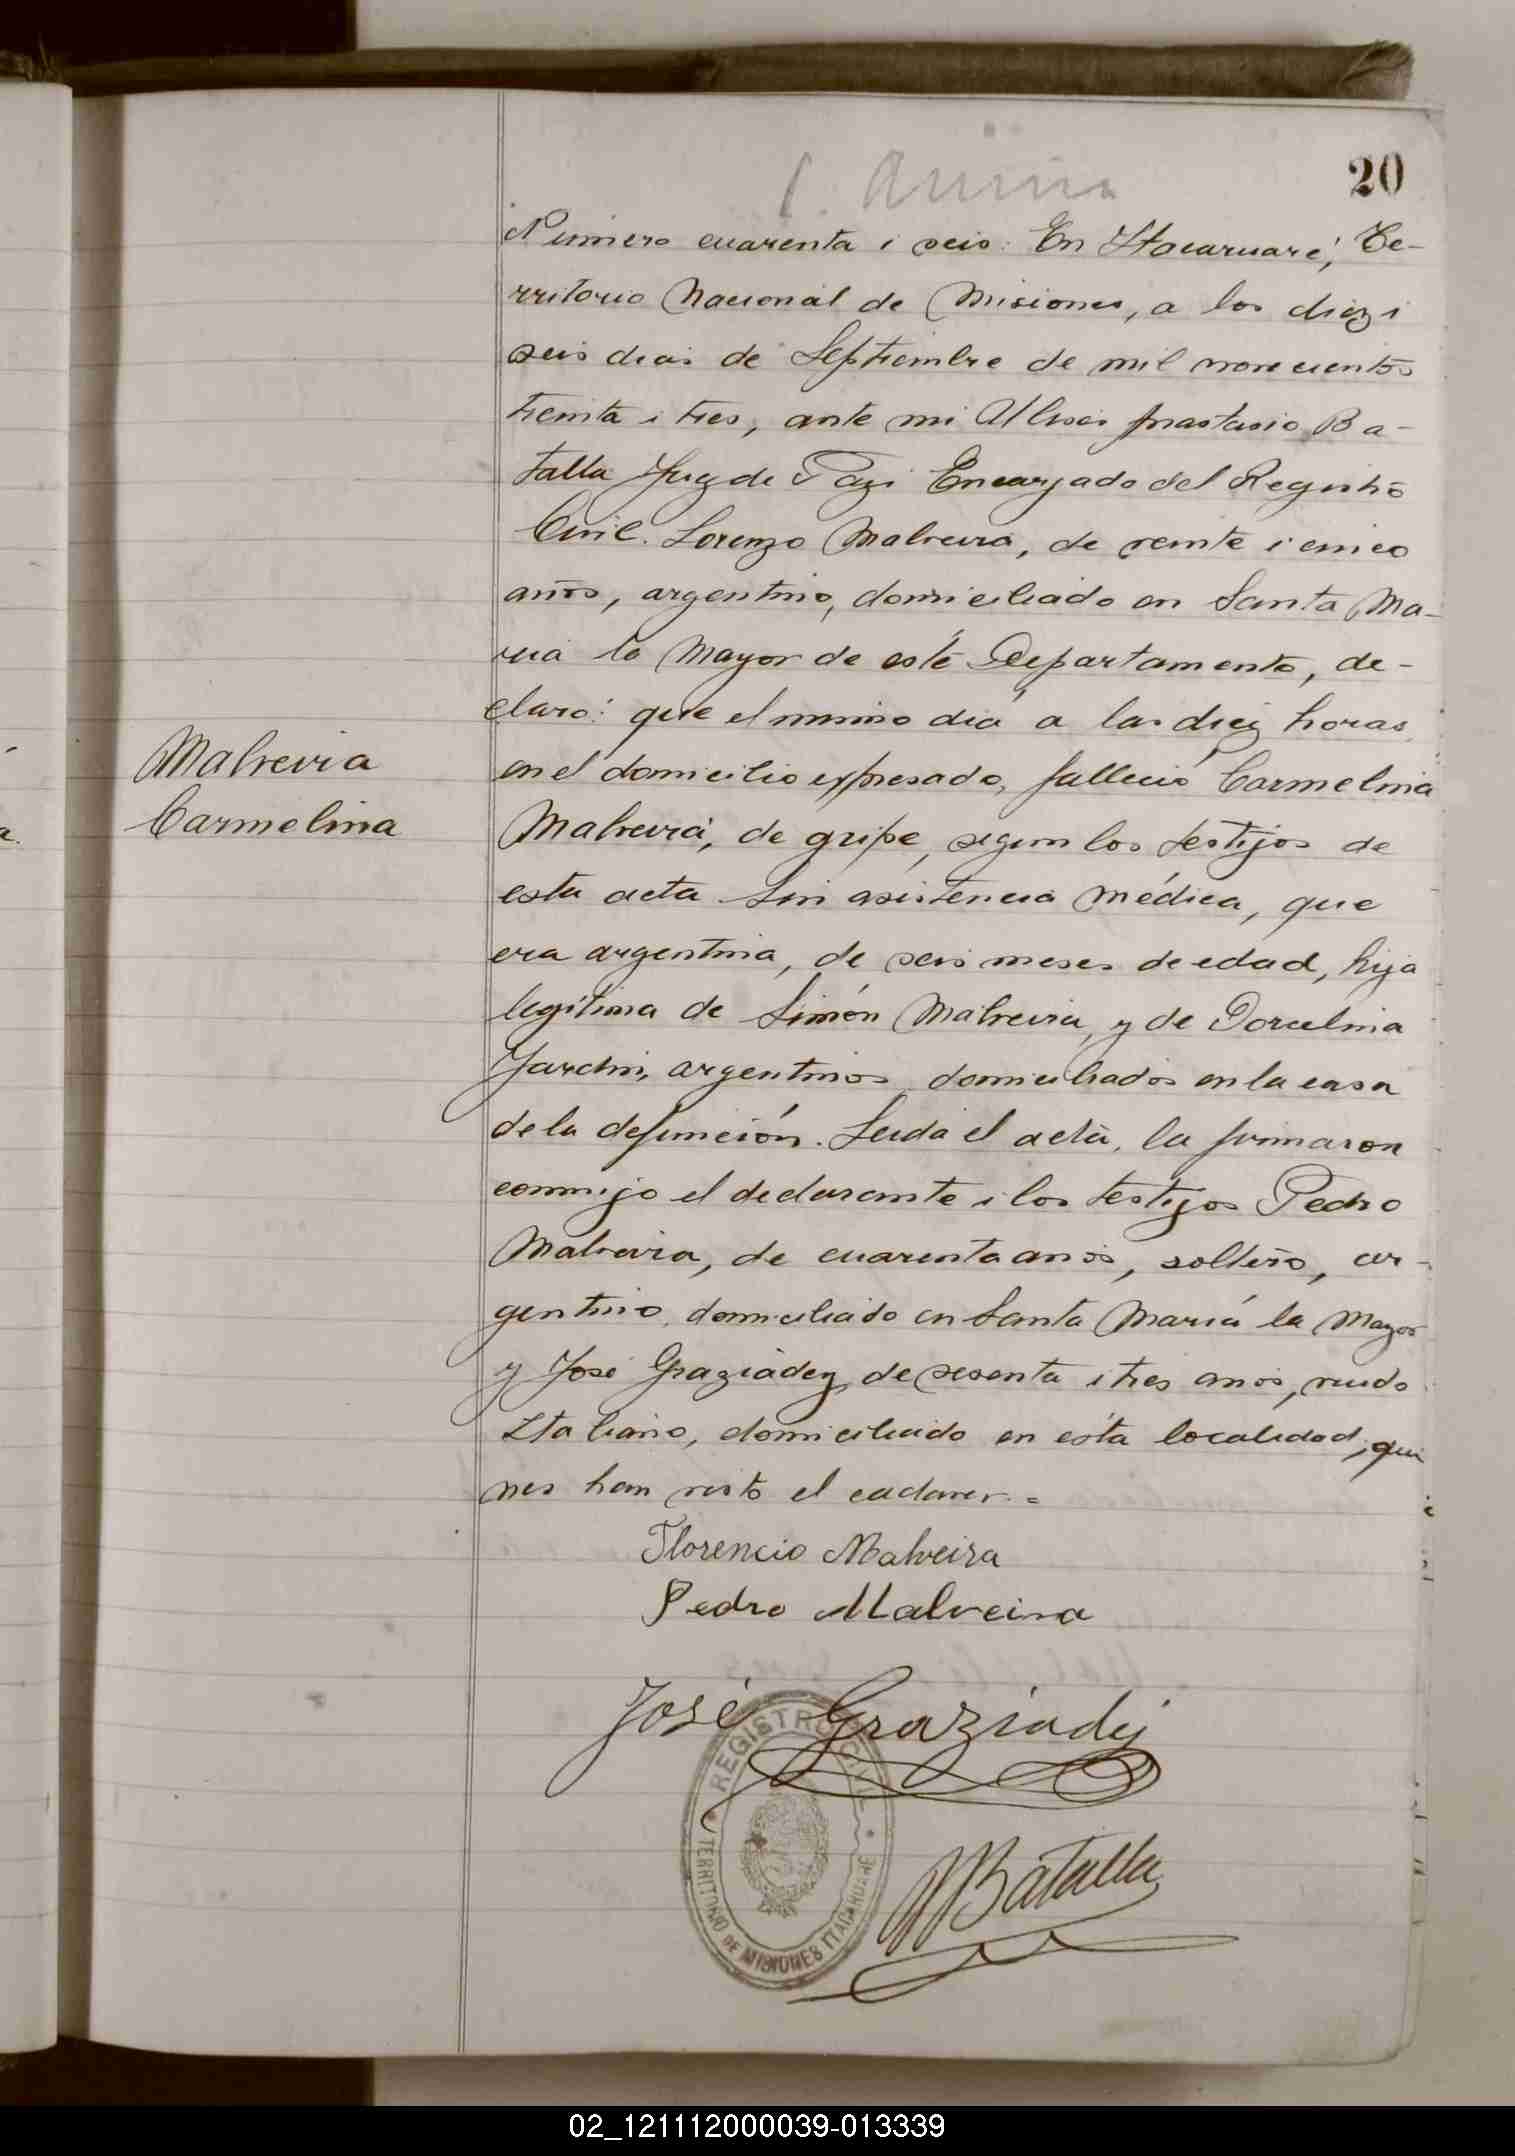 20
Número cuarenta i seis: En Itacaruaré, Te-
rritorio Nacional de Misiones, a los diez i
seis dias de Septiembre de mil novecientos
treinta i tres, ante mi Ulises Anastasio Ba-
talla Juez de Paz i Encargado del Registro
Civil. Lorenzo Malveira, de veinte i cinco
años, argentino, domiciliado en Santa Ma-
ria la Mayor de esté Departamento, de-
claró: que el mismo dia a las diez horas
en el domicilio expresado, falleció Carmelina
Malveira
Carmelina
Malveira, de gripe, segun los testijos de
esta acta sin asistencia médica, que
era argentina, de seis meses de edad, hija
legítima de Simón Malveira, y de Dorcelina
Jardin, argentinos domiciliados en la casa
de la defunción. Leida el acta, la firmaron
conmijo el declarante i los testijos Pedro
Malveira, de cuarenta anos, soltero, ar-
gentino, domiciliado en Santa María la Mayor
y José Graziadey, de sesenta i tres anos, viudo
Italiano, domiciliado en esta localidad, quie
nes han visto el cadaver.=
Florencio Malveira
Pedro Malveira
José Graziadey
REGISTRO CIVIL
TERRITORIO DE MISIONES ITACARUARE
Batalla
02_121112000039-013339